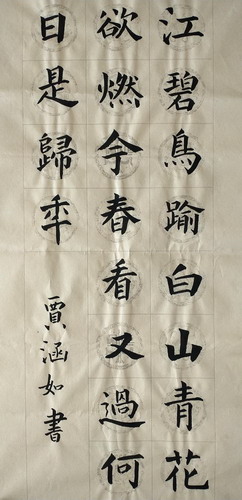 江碧鳥踰白山青花
欲燃今春看又過何
日是歸年
賈涵如書